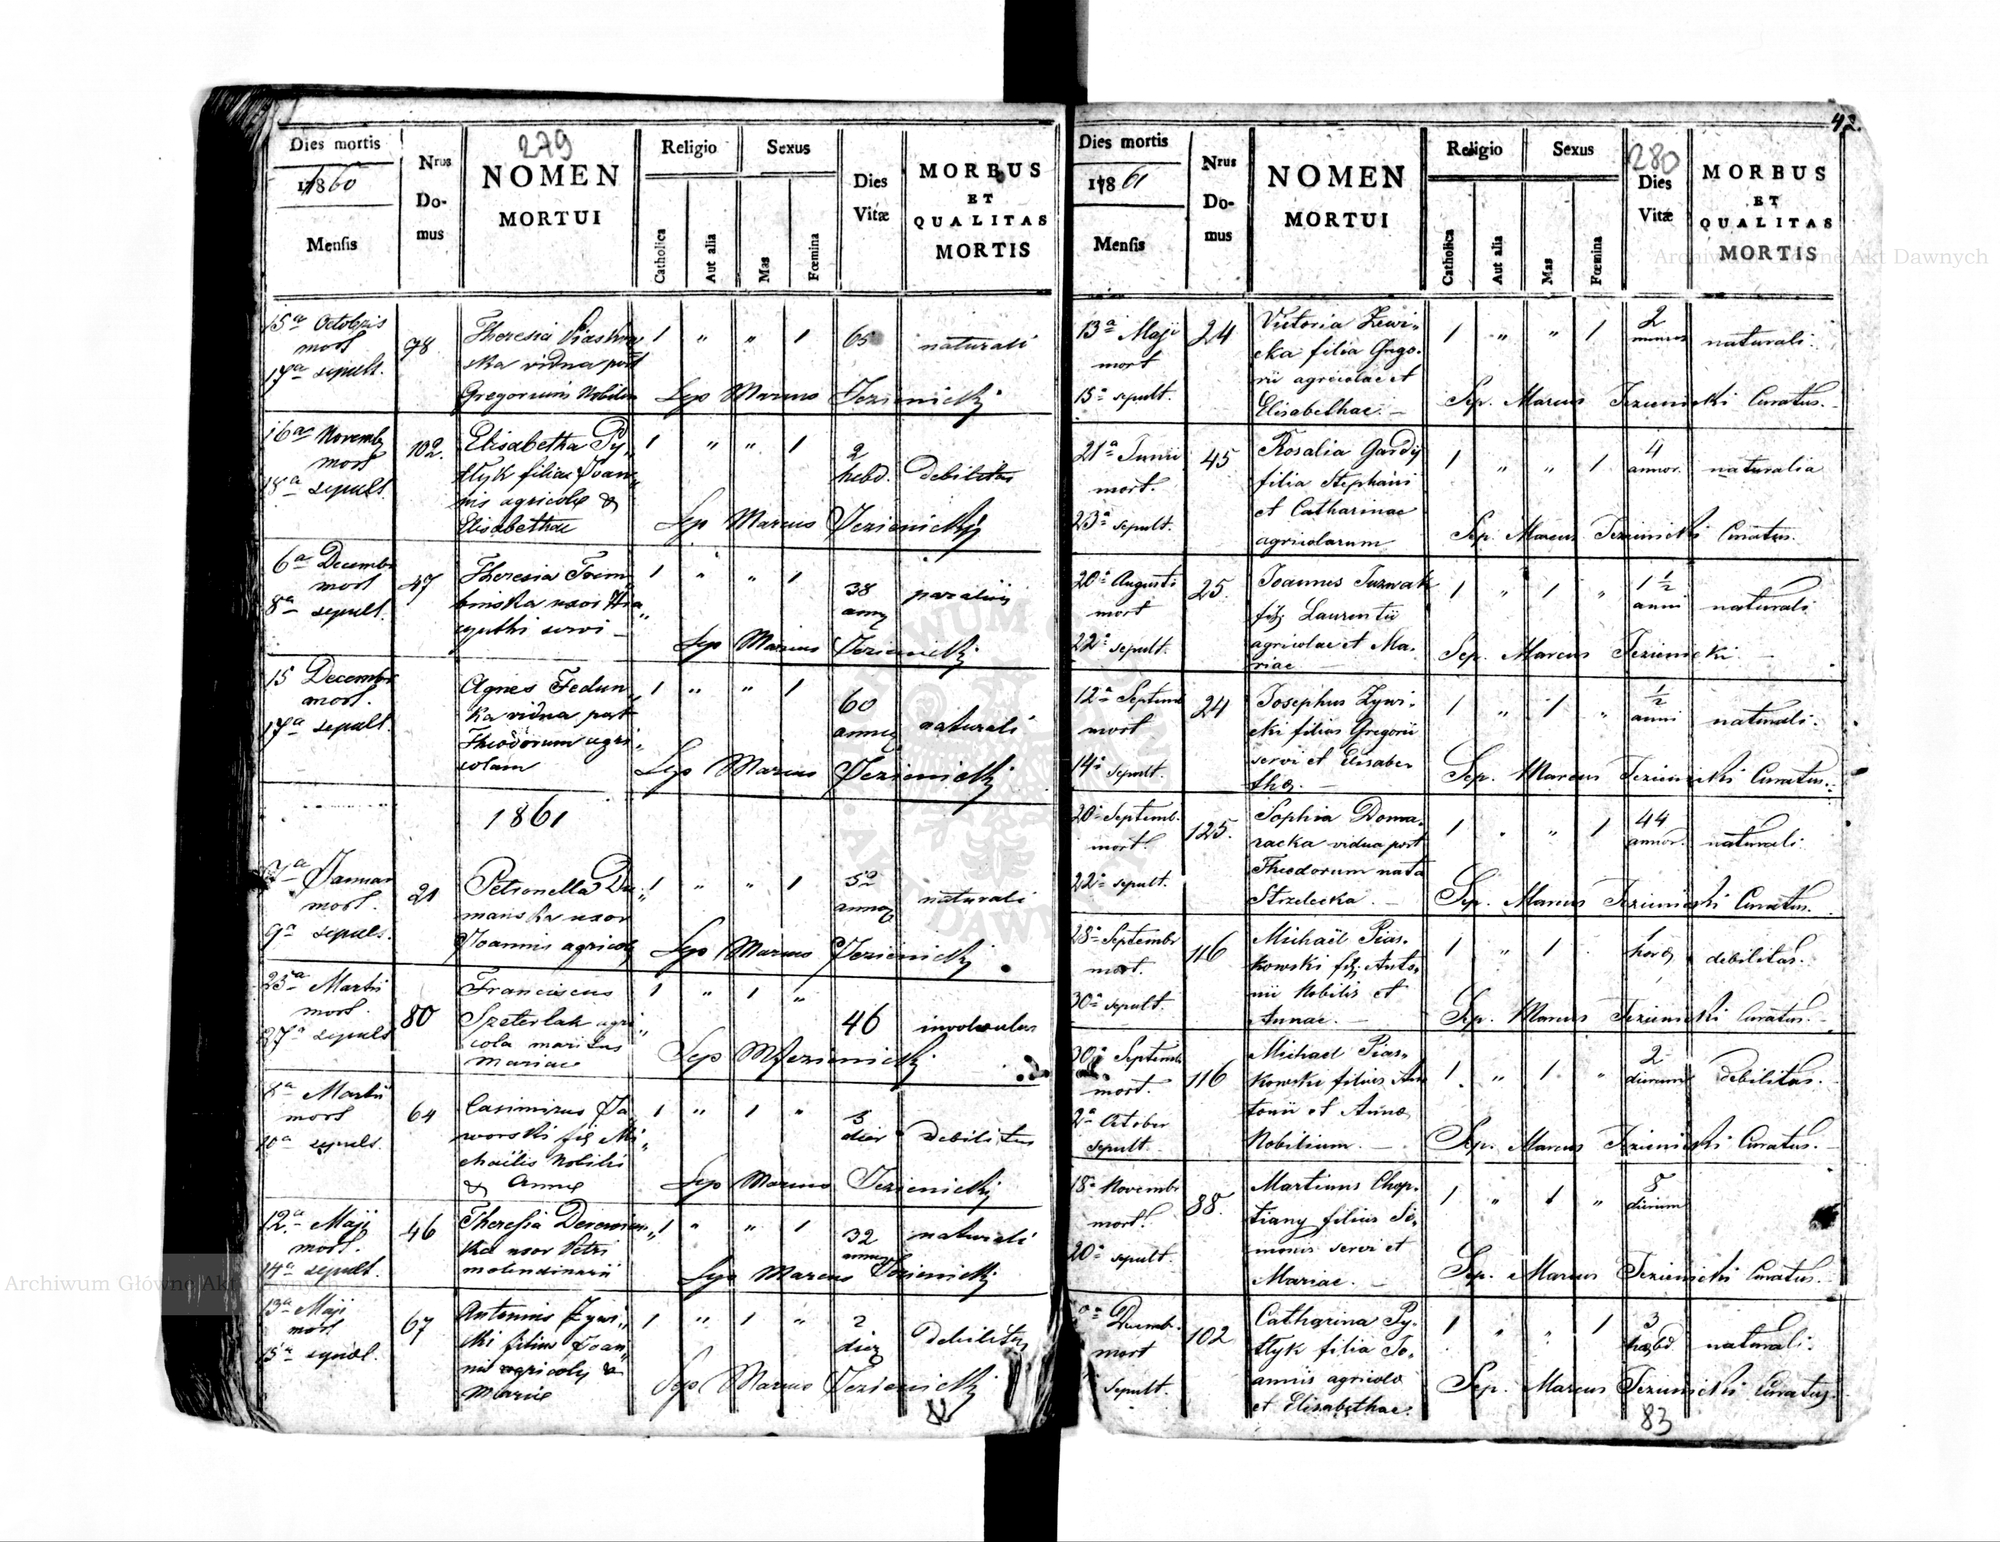 279
Dies mortis
1860
Mensis
Nrus
Do-
mus
NOMEN
MORTUI
Religio
Catholica
Aut alia
Sexus
Mas
Fœmina
Dies
Vitæ
MORBUS
ET
QUALITAS
MORTIS
15a Octobris
mort
17a sepult.
98
Theresia
ska vidua post
Gregorium Nobilem
1 " " 1
65
naturali
Sep Marcus Jezienicky
16a Novemb
mort
18a sepult
102.
Elisabetha Py„
tlyk filia Joan„
nis agricolæ &
Elisabethae
1 " " 1
2
hebd.
debilitas
Sep Marcus Jezienicky
6a Decembr
mort
8a sepult.
47
Theresia
uxor
servi
1 " " 1
38
Sep Marcus Jezienicky
15 Decembr
mort.
17a sepult.
Agnes Fedun„
ka vidua post
Theodorum agri„
colam
1 " " 1
60
naturali
Sep Marcus Jezienicky
1861
7a Januar
mort.
9a sepult.
21
Petronella Du„
manska uxor
Joannis agricolæ
1 " " 1
naturali
Sep Marcus Jezienicky
25a Martii
mort.
27a sepult
80
Franciscus
Szeterlak agri„
cola maritus
Mariae
1 " 1 "
46
Sep MJezienicky
8a Martii
mort
10a sepult.
64
Casimirus Ja„
worski fig Mi„
chaëlis Nobilis
& Annæ
1 " 1 "
3
dier
debilitas
Sep Marcus Jezienicky
12a Maji
mort.
14a sepult.
46
Theresia
ka uxor Petri
molendinarii
1 " " 1
32
naturali
Sep Marcus Jezienicky
13a Maji
mort
15a sepult.
67
Antonius Zywi„
cki filius Joan„
nis agricolæ &
Mariæ
1 " 1 "
2
debilitas
Sep Marcus Jezienicky
82
42.
280
Dies mortis
1861
Mensis
Nrus
Do-
mus
NOMEN
MORTUI
Religio
Catholica
Aut alia
Sexus
Mas
Fœmina
Dies
Vitæ
MORBUS
ET
QUALITAS
MORTIS
13a Maji
mort
15a sepult.
24
Victoria Zewi-
cka filia Grego-
rii agricolae et
Elisabethae. —
1 " " 1
2
naturali.
Sep. Marcus Jezienicki Curatus. —
21a Junii
mort.
23a sepult.
45
Rosalia Gardy
filia Stephani
et Catharinae
agricolarum
1 " " 1
4
annor.
naturalia
Sep. Marcus Jezienicki Curatus.
20a Augusti
mort
22a sepult.
25.
Joannes Juzwak
filg Laurentii
agricolae et Ma-
riae
1 " 1 "
1 1/2
anni
naturali
Sep. Marcus Jezienicki. —
12a Septemb
mort
14a sepult.
24
Josephus Zywi-
cki filius Gregorii
servi et Elisabe-
thæ. —
1 " 1 "
1/2
anni
naturali.
Sep. Marcus Jezienicki Curatus. —
20a Septemb.
mort.
22a sepult.
125.
Sophia Doma-
racka vidua post
Theodorum nata
Strzelecka. —
1 " " 1
44
annor.
naturali.
Sep. Marcus Jezienicki Curatus.
28a Septembr
mort.
30a sepult.
116
Michaël Pias-
kowski filg Anto-
nii Nobilis et
Annae. —
1 " 1
1
horæ
debilitas.
Sep. Marcus Jezienicki Curatus. —
30a Septemb
mort.
2a October
sepult.
116
Michael Pias-
kowski filius An
tonii et Annæ
Nobilium. —
1 " 1 "
2
dierum
debilitas.
Sep. Marcus Jezienicki Curatus. —
18a Novembr
mort.
20a sepult.
88.
Martinus Chop-
tiany filius Si-
monis servi et
Mariae. —
1 " 1 "
8
dierum
Sep. Marcus Jezienicki Curatus. —
Decemb.
mort
sepult.
102
Catharina Py-
tlyk filia Jo-
annis agricolæ
et Elisabethae.
1 " " 1
3
hebd.
naturali.
Sep. Marcus Jezienicki Curatus.
83
Archiwum Główne Akt Dawnych
Archiwum Główne Akt Dawnych